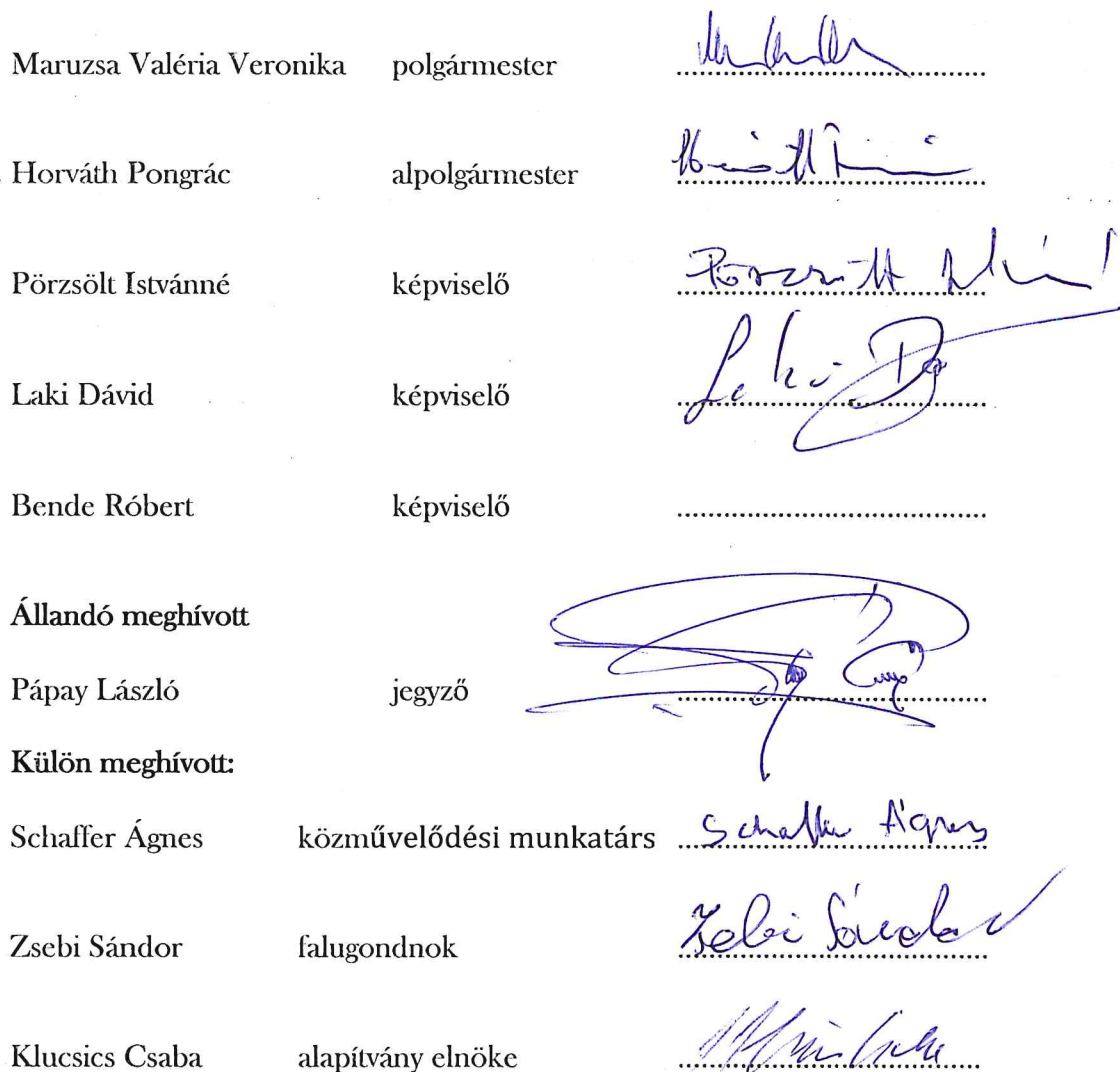 Maruzsa Valéria Veronika polgármester
Horváth Pongrác alpolgármester
Pörzsölt Istvánné képviselő Pörzsölt
Laki Dávid képviselő Laki
Bende Róbert képviselő ........................................
Állandó meghívott
Pápay László jegyző
Külön meghívott:
Schaffer Ágnes közművelődési munkatárs Schaffer Ágnes
Zsebi Sándor falugondnok Zsebi Sándor
Klucsics Csaba alapítvány elnöke